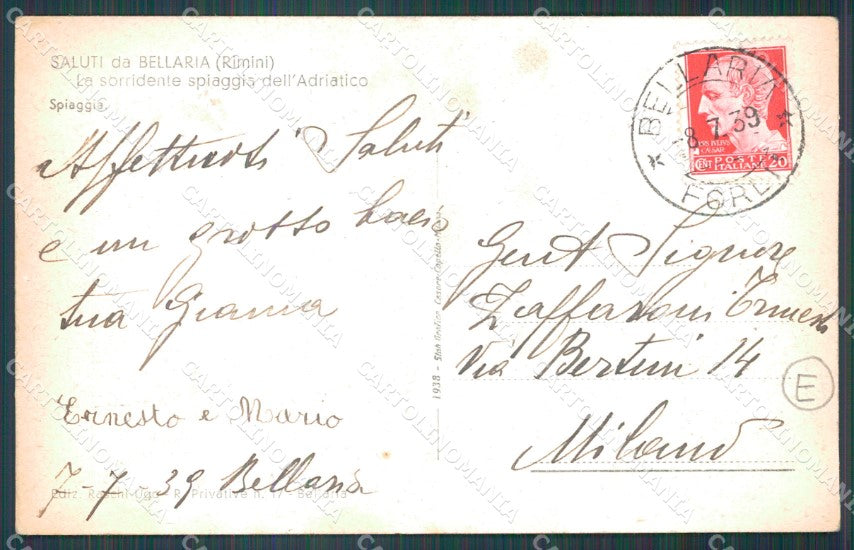 SALUTI da BELLARIA (Rimini)
La sorridente spiaggia dell'Adriatico
Spiaggia.
Affettuosi Saluti
e un grosso bacio
tua Gianna
Ernesto e Mario
7-7-39 Bellaria
Ediz. Raschi Ugo - R. Privative n. 17 - Bellaria
1938 - Stab. Grafico Cesare Capello
BELLARIA
8.7.39
FORLI
CENT POSTE 20
ITALIANE
CAESAR
Gent Signore
Zaffaroni Ernesto
Via Bertini 14
Milano
E
CARTOLINOMANIA